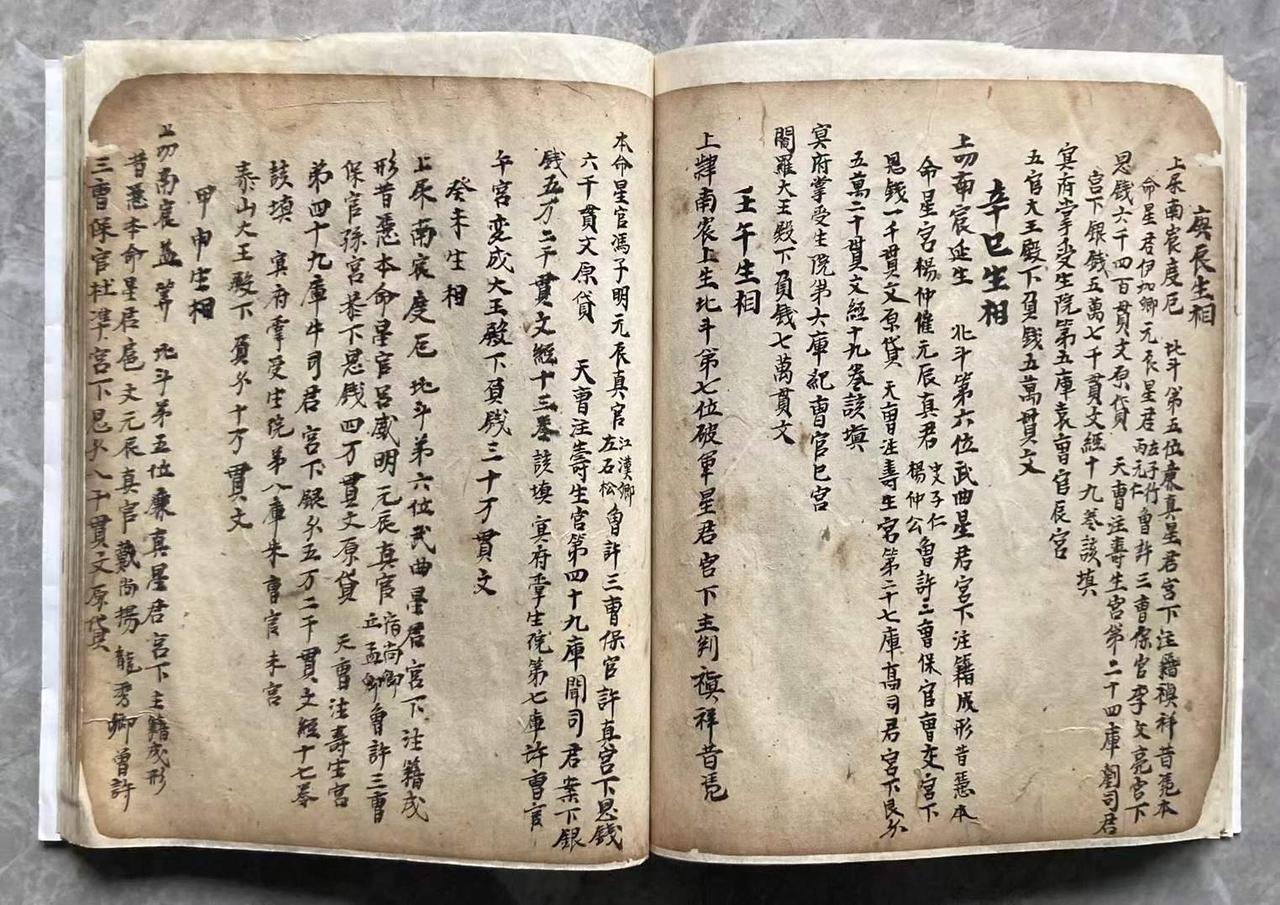 庚辰生相
上界南宸度厄 北斗第五位廉真星君宮下注籍禎祥昔蒐本
命星君伊知卿元辰星君左子竹丙元仁曾許三曹保官李文亮宮下
恩錢六千四百貫文原貸 天曹注壽生宮第二十四庫劉司君
宮下銀錢五萬七千貫文經十九卷該填
冥府掌受生院第五庫袁曹官辰宮
五官大王殿下負錢五萬貫文
辛巳生相
上叨南宸延生 北斗第六位武曲星君宮下注籍成形昔蒐本
命星宮楊仲催元辰真君史子仁楊仲公曾許三曹保官曹交宮下
恩錢一千貫文原貸 天曹注壽生宮第二十七庫高司君宮下良
五萬二十貫文經十九卷該填
冥府掌受生院第六庫紀曹官巳宮
閻羅大王殿下負錢七萬貫文
壬午生相
上肆南宸上生北斗第七位破軍星君宮下主判禎祥昔蒐
本命星官馮子明元辰真官江漢卿左石松曾許三曹保官許真宮下恩錢
六千貫文原貸 天曹注壽生官第四十九庫聞司君案下銀
錢五万二千貫文經十三卷該填 冥府掌生院第七庫許曹官
午宮变成大王殿下負錢三十万貫文
癸未生相
上界南宸度厄 北斗第六位武曲星君宮下注籍成
形昔蒐本命星官呂威明元辰真官宿尚卿丘孟卿曾許三曹
保官孫宮恭下恩錢四万貫文原貸 天曹注壽生宮
第四十九庫牛司君宮下銀五万二千貫文經十七卷
該填 冥府掌受生院第八庫朱曹官未宮
泰山大王殿下負十万貫文
甲申生相
上叨南宸益筭 北斗第五位廉真星君宮下主籍成形
昔蒐本命星君扈文元辰真官戴尚揚龍秀卿曾許
三曹保官杜準宮下恩八千貫文原貸